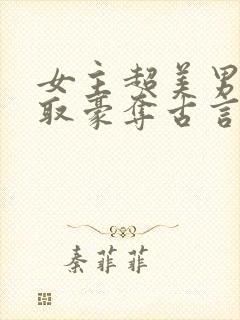 女主超美男
取豪夺古言
秦菲菲